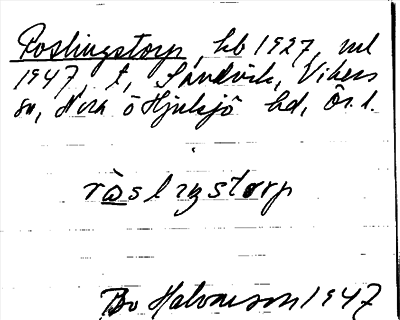 Roslingstorp, kb 1927, ml
1947 t, Sandvik, Vikers
sn, Nora o Hjulsjö hd, Ör. l.
ràslıŋstorp
Bo Halvarson 1947